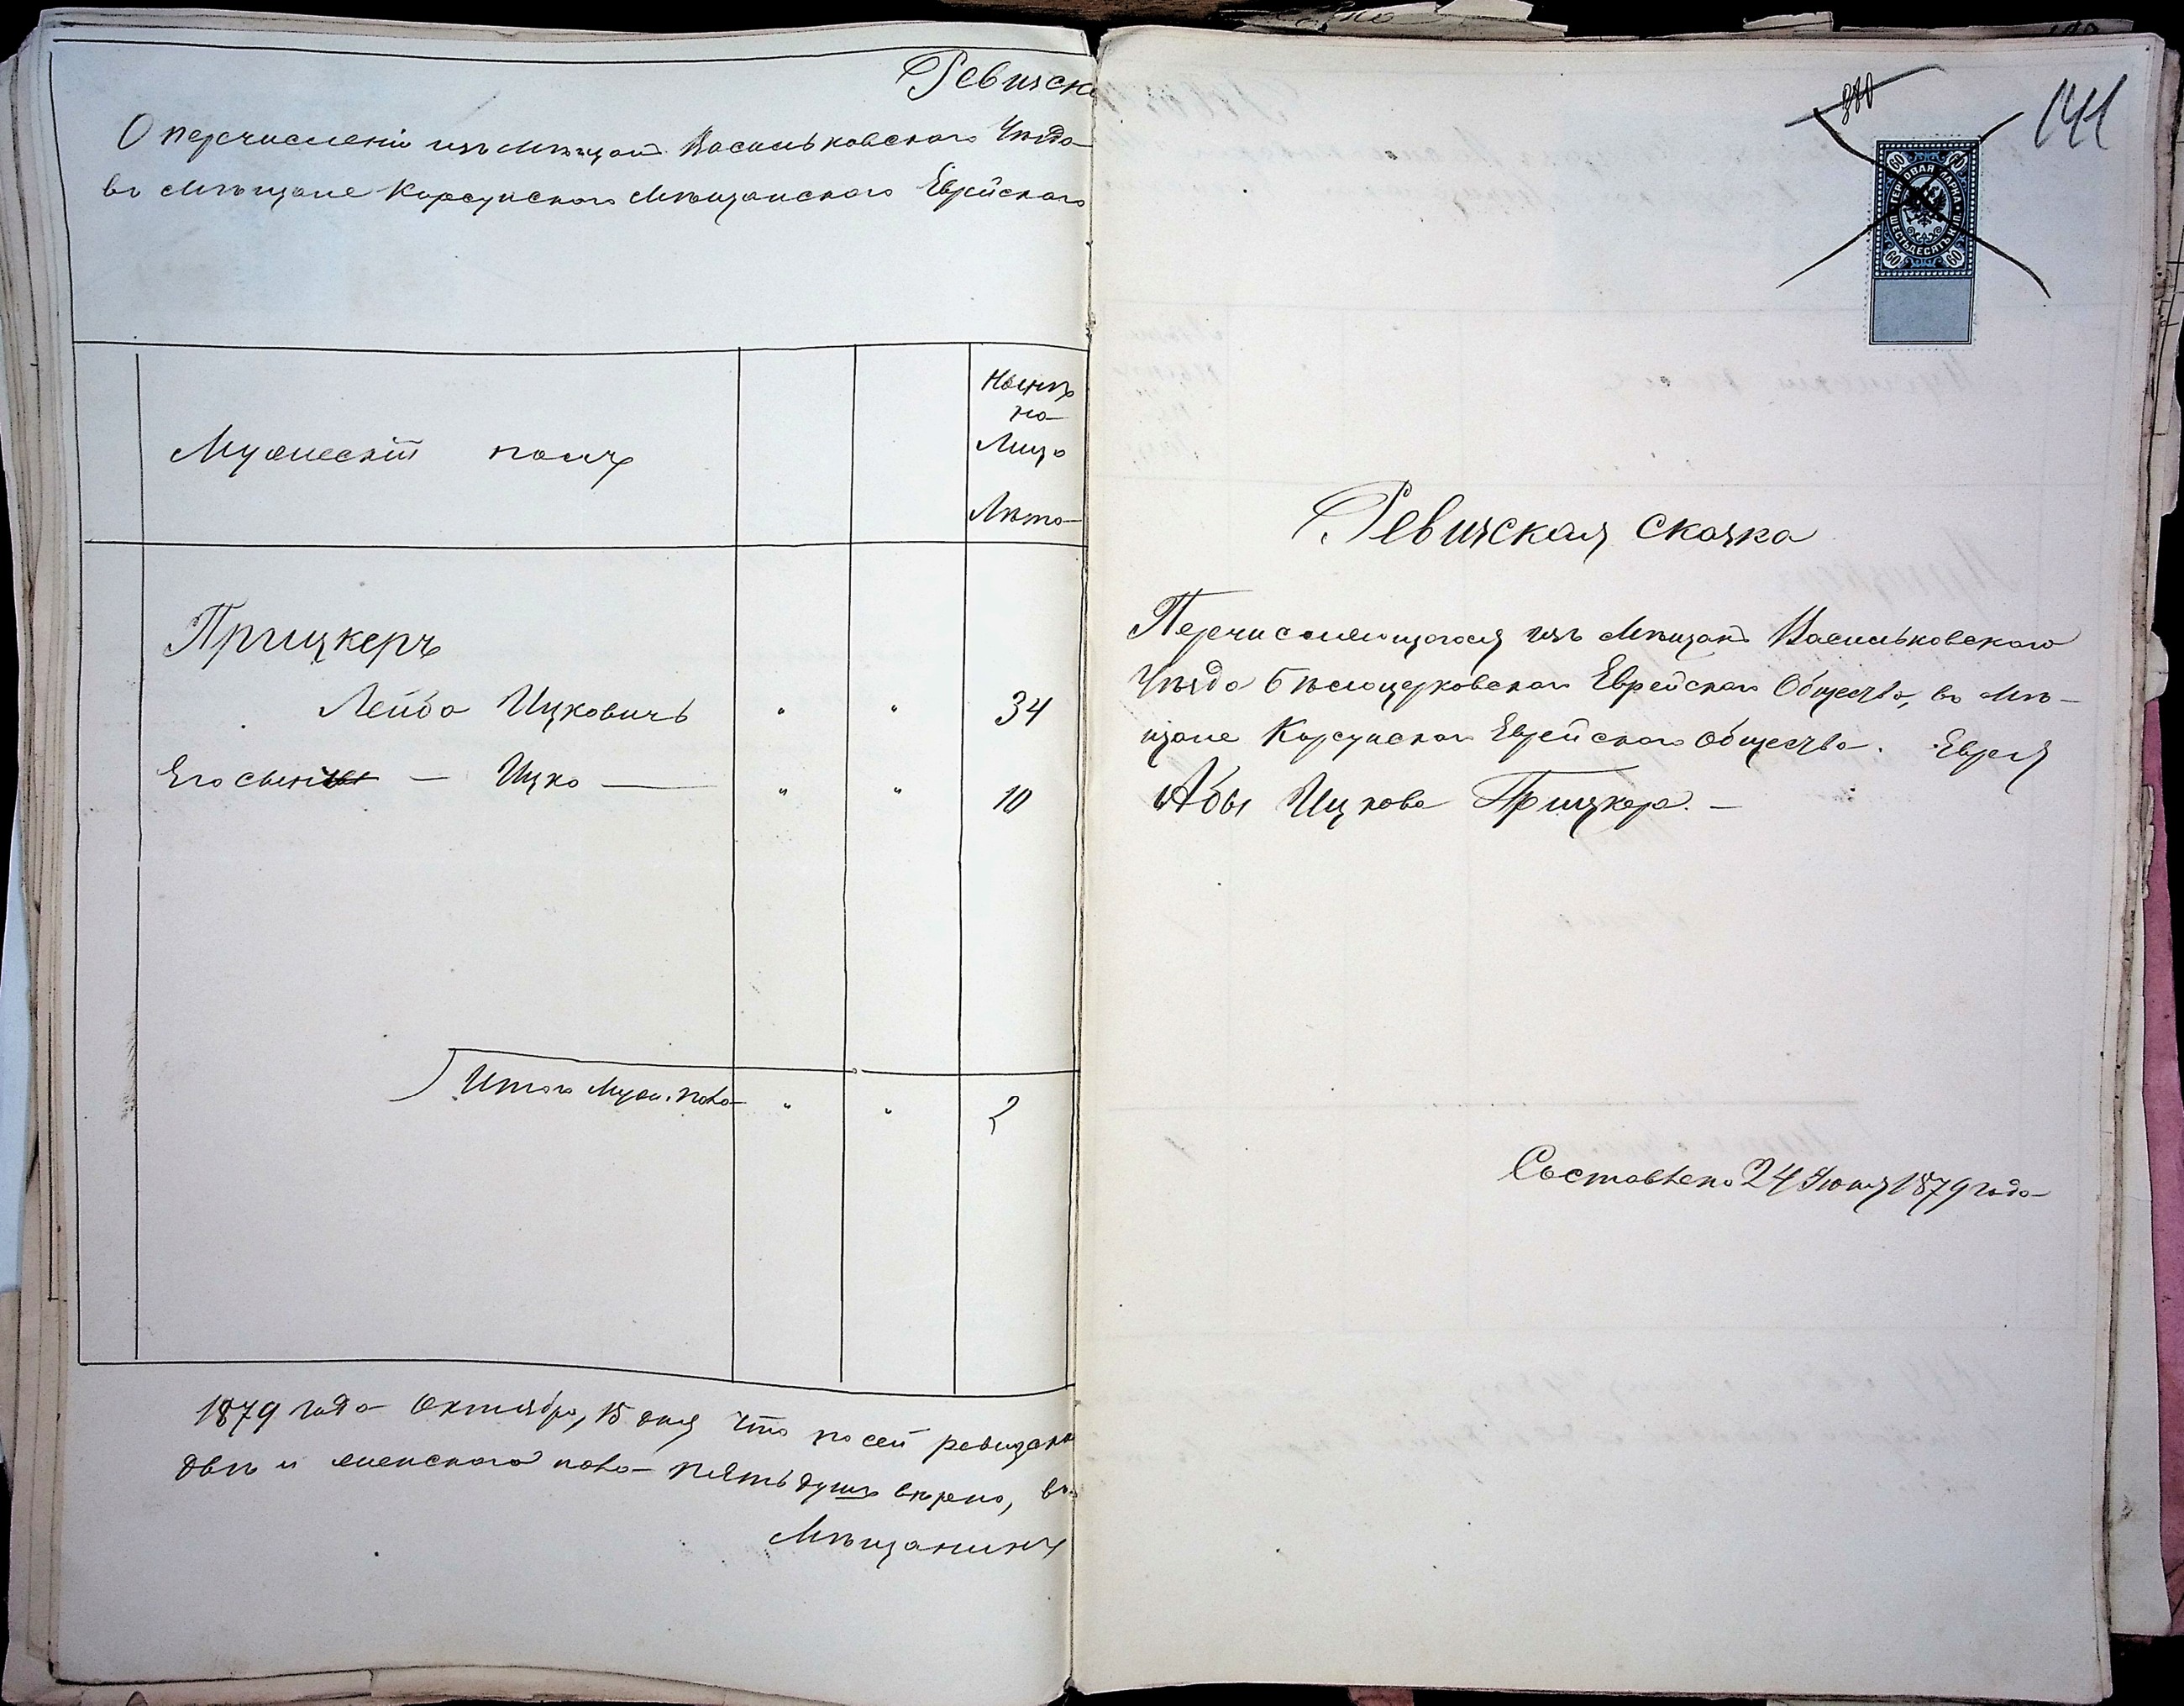 Ревизск
О перечислении изъ Мѣщанъ Васильковскаго Уѣзда
въ Мѣщане Корсунскаго Мѣщанскаго Еврейскаго
Мужескій полъ
Нынѣ
на
Лицо
Лѣта
Прицкеръ
Лейба Ицковичъ " " 34
Его сынъ — Ицко — " " 10
Итого Муж. пола " " 2
1879 года Октября, 15 дня что по сей ревизск
двѣ и женскаго пола пять душъ вѣрно, въ
Мѣщанинъ
380
141
ГЕРБОВАЯ МАРКА
ШЕСТЬДЕСЯТЪ КОП.
60 60
60 60
Ревизская сказка
Перечисляющагося изъ Мѣщанъ Васильковскаго
Уѣзда Бѣлоцерковскаго Еврейскаго Общества, въ Мѣ-
щане Корсунскаго Еврейскаго Общества. Еврея
Абы Ицкова Прицкера. —
Составлена 24 Іюня 1879 года